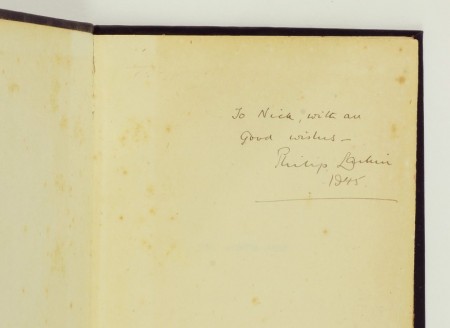 To Nick, with all
Good wishes –
Philip Larkin
1945